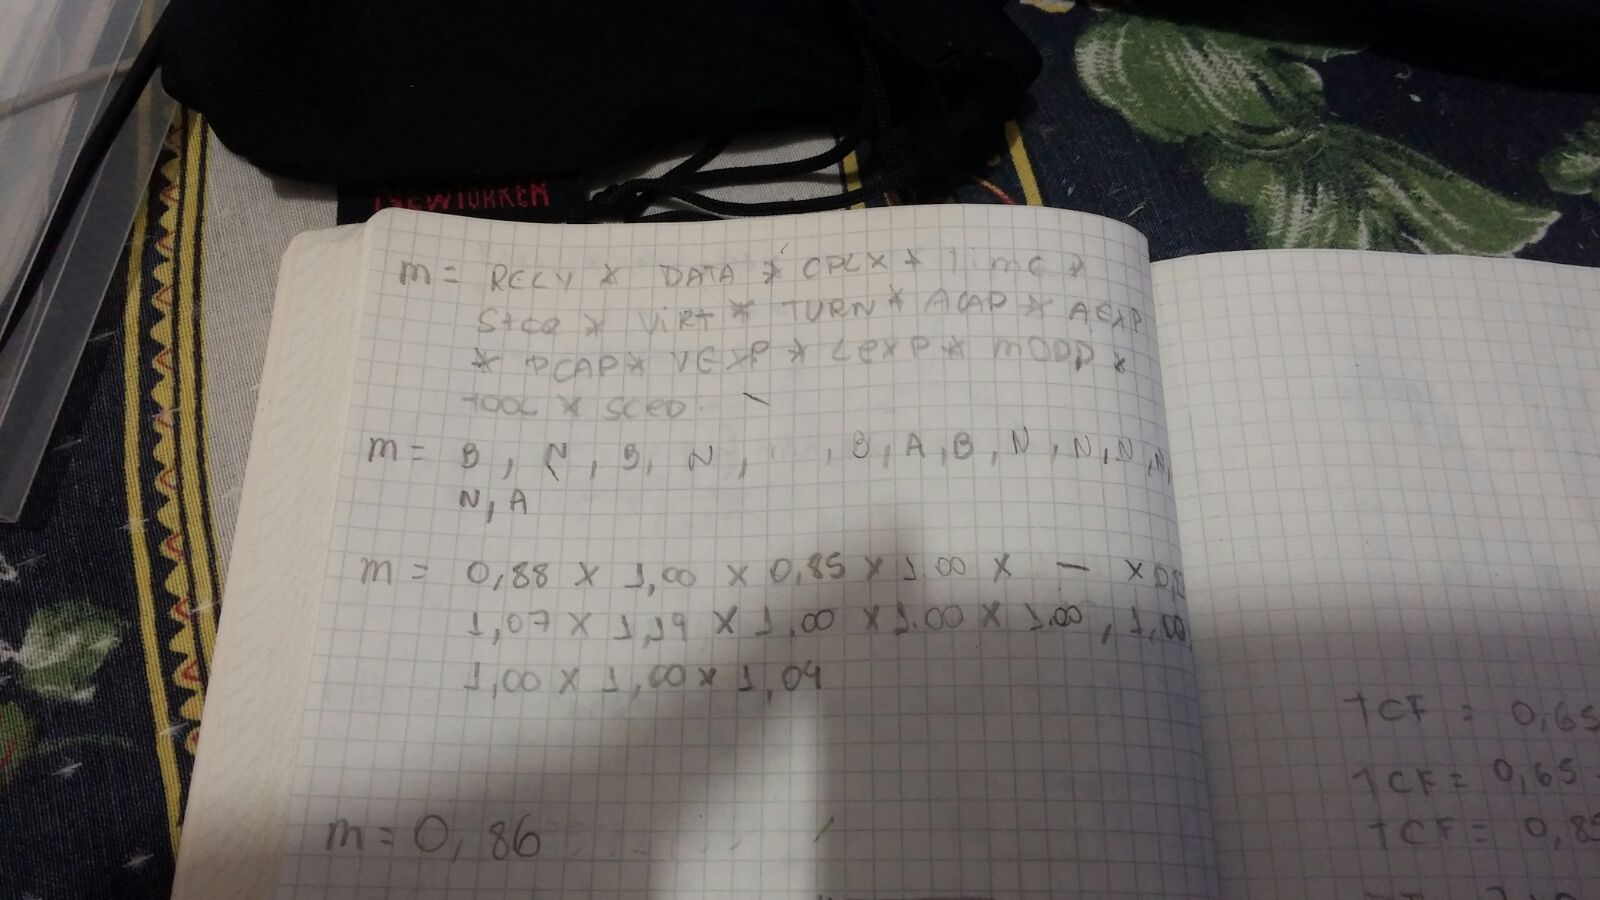 m = RELY * DATA * CPLX * Time *
Stco * ViRt * TURN * ACAP * AEXP
* PCAP * VEXP * LEXP * MODP *
tool * SCED.
m = B, N, B, N, , B, A, B, N, N, N, N,
N, A
m = 0,88 x 1,00 x 0,85 x 1.00 x — x
1,07 x 1,19 x 1,00 x 1.00 x 1.00, 1,00
1,00 x 1,00 x 1,04
m = 0,86
TCF = 0,65
TCF = 0,65
TCF = 0,85